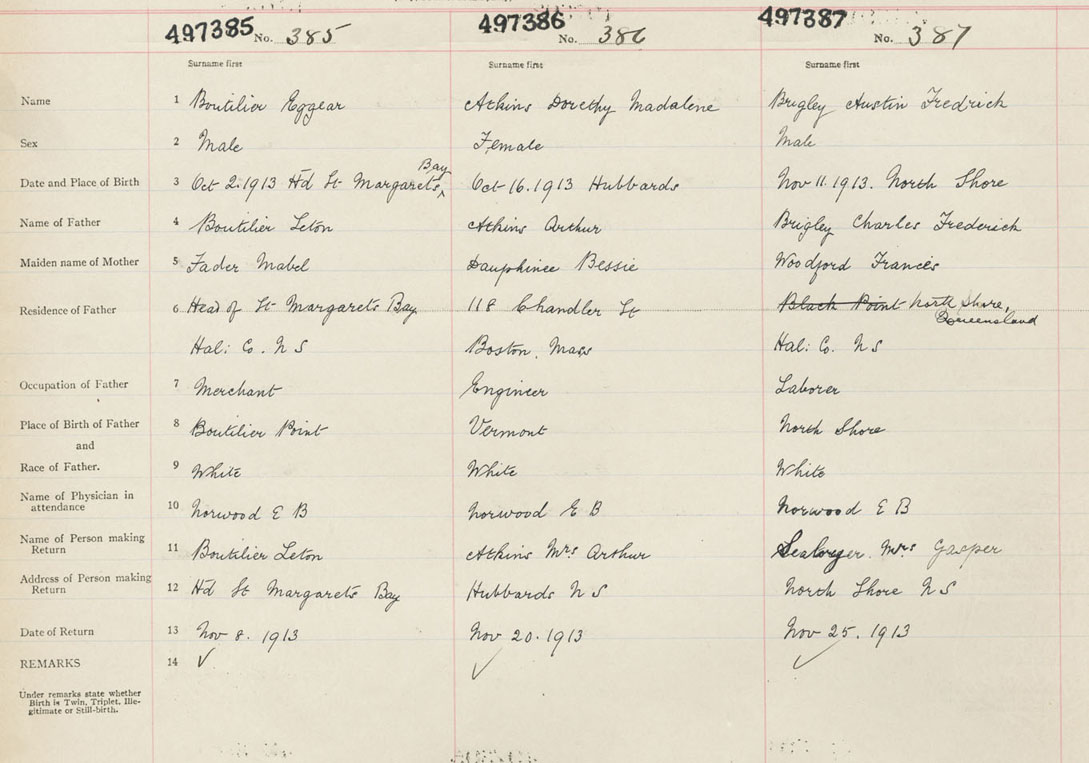 497385 No. 385 497386 No. 386 497387 No. 387
Surname first Surname first Surname first
Name 1 Boutilier Eggear Atkins Dorethy Madalene Brigley Austin Fredrick
Sex 2 Male Female Male
Bay
Date and Place of Birth 3 Oct 2. 1913 Hd St Margarets Oct 16. 1913 Hubbards Nov 11. 1913. North Shore
Name of Father 4 Boutilier Leton Atkins Arthur Brigley Charles Frederick
Maiden name of Mother 5 Fader Mabel Dauphinee Bessie Woodford Frances
Residence of Father 6 Head of St Margarets Bay 118 Chandler St Black Point North Shore,
Queensland
Hal: Co. N S Boston. Mass Hal: Co. N S
Occupation of Father 7 Merchant Engineer Laborer
Place of Birth of Father 8 Boutilier Point Vermont North Shore
and
Race of Father. 9 White White White
Name of Physician in
attendance 10 Norwood E B Norwood E B Norwood E B
Name of Person making
Return 11 Boutilier Leton Atkins Mrs Arthur Mrs Gasper
Address of Person making
Return 12 Hd St Margarets Bay Hubbards N S North Shore N S
Date of Return 13 Nov 8. 1913 Nov 20. 1913 Nov 25. 1913
REMARKS 14 ✓ ✓ ✓
Under remarks state whether
Birth is Twin, Triplet, Ille-
gitimate or Still-birth.